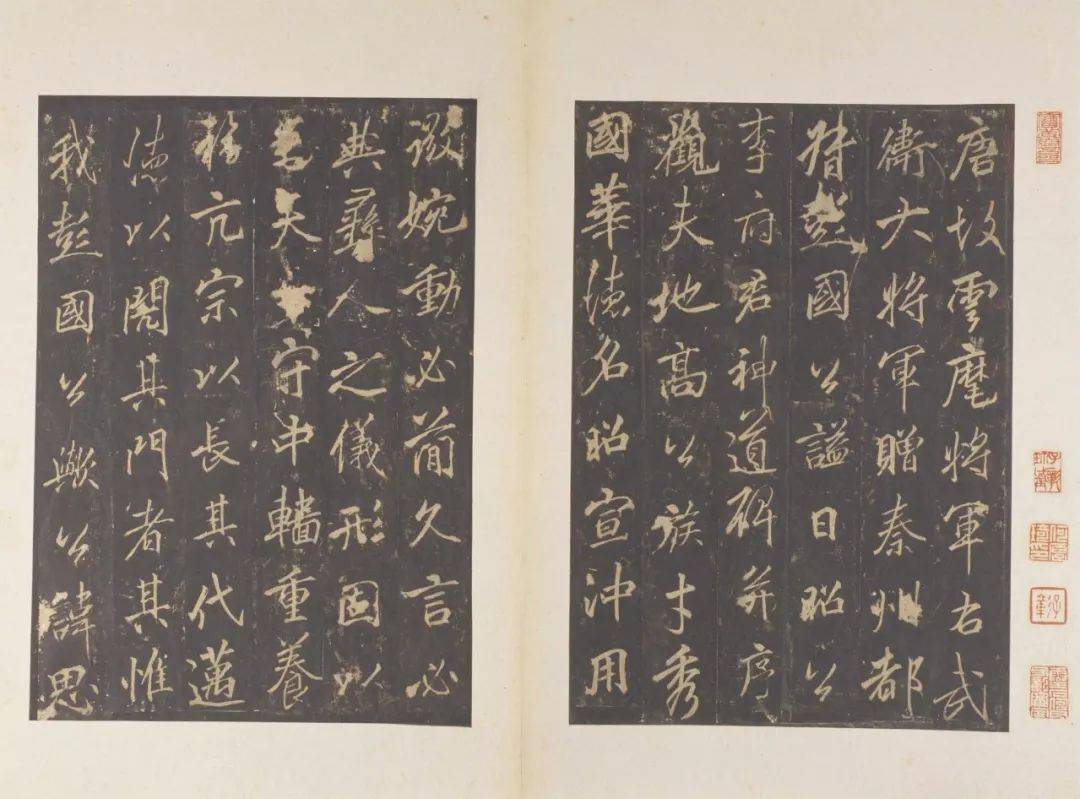 唐故雲麾將軍右武
衛大將軍贈秦州都
督彭國公謚曰昭公
李府君神道碑并序
觀夫地高公族才秀
國華德名昭宣沖用
微婉動必簡久言必
典彝人之儀形固以
守中重養
亢宗以長其代邁
德以其門者其惟
我彭國公歟公諱思